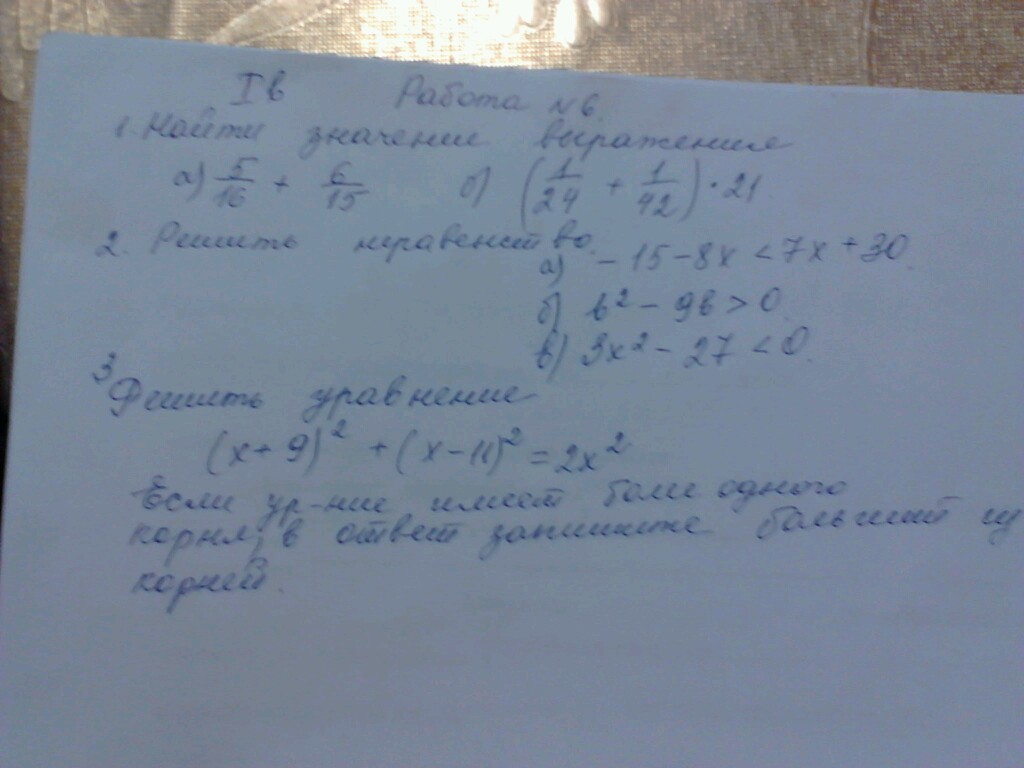 Iв Работа №6.
1. Найти значение выражения
а) 5/16 + 6/15 б) (1/24 + 1/42) · 21.
2. Решить неравенство.
а) -15-8x < 7x + 30.
б) b² - 9b > 0.
в) 3x² - 27 < 0.
3 Решить уравнение
(x+9)² + (x-11)² = 2x²
Если ур-ние имеет более одного
корня, в ответ запишите больший из
корней.